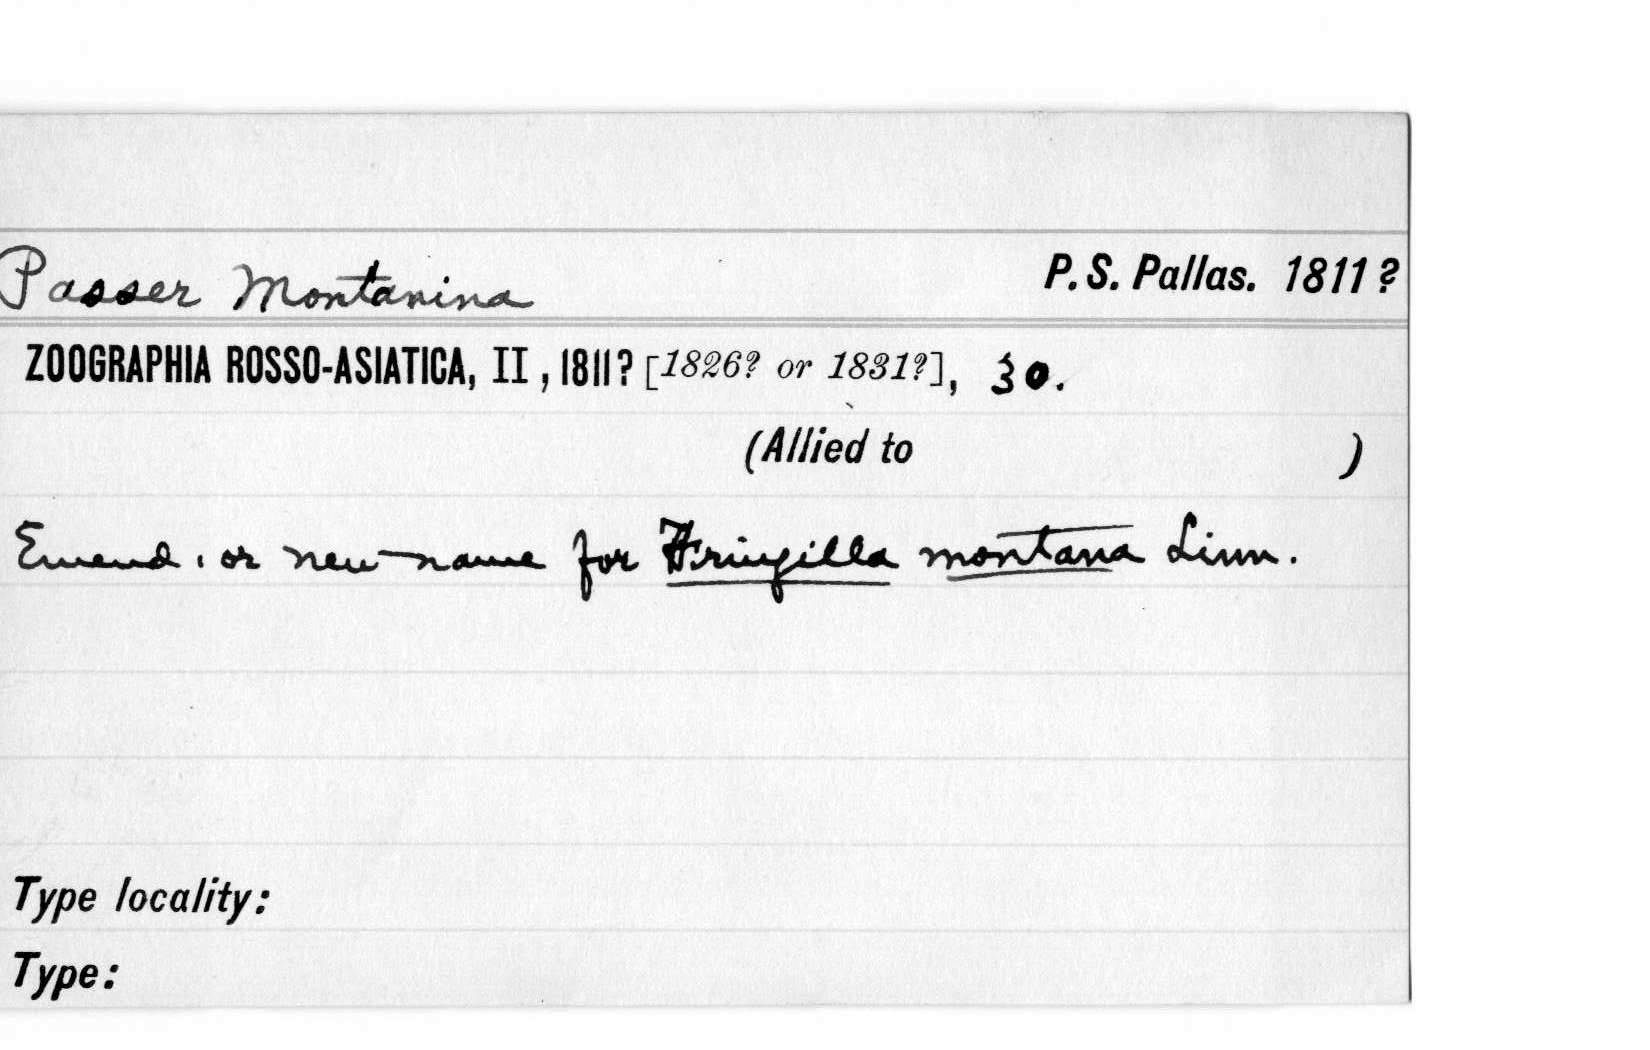 Passer Montanina P. S. Pallas. 1811?
ZOOGRAPHIA ROSSO-ASIATICA, II, 1811? [1826? or 1831?], 30.
(Allied to )
Emend. or new name for Fringilla montana Linn.
Type locality:
Type: